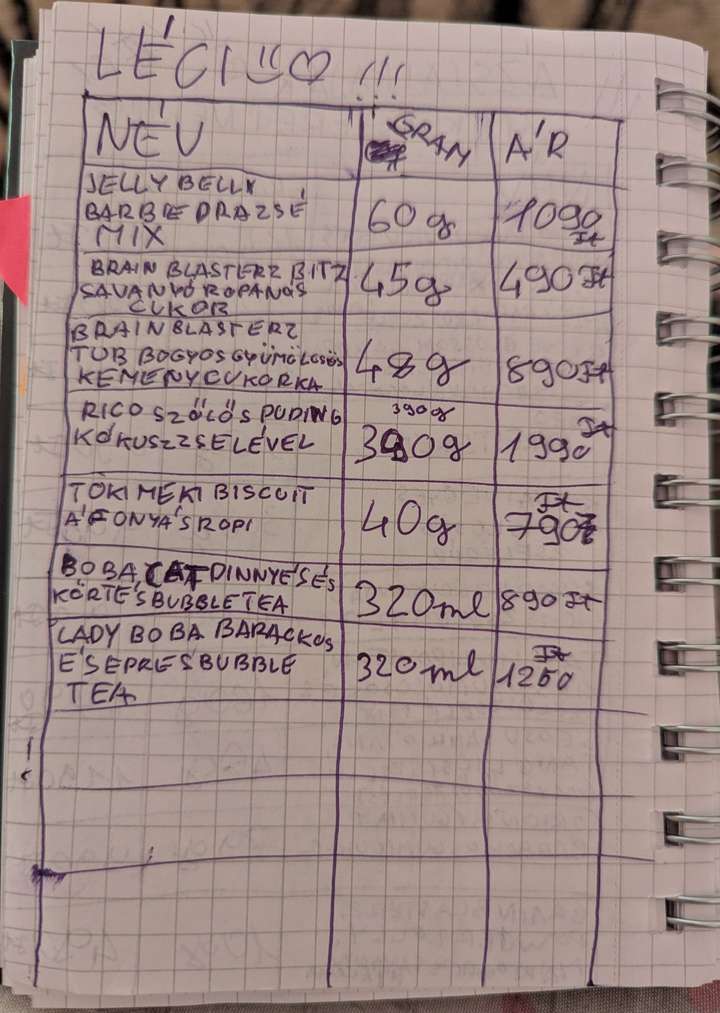 LÉCI !!!
NÉV GRAM ÁR
JELLY BELLY
BARBIE DRAZSÉ
MIX
60g 1090 Ft
BRAIN BLASTERZ BITZ
SAVANYÓ ROPANÓS
CUKOR
45g 490 Ft
BRAIN BLASTERZ
TUB BOGYOS GYÜMÖLCSÖS
KEMÉNYCUKORKA
48g 890 Ft
RICO SZŐLŐS PUDING
KÓKUSZZSELÉVEL
390g
390g 1990 Ft
TOKIMEKI BISCUIT
ÁFONYÁS ROPI
40g 790 Ft
BOBA CAT DINNYÉS ÉS
KÖRTÉS BUBBLE TEA
320ml 890 Ft
LADY BOBA BARACKOS
ÉS EPRES BUBBLE
TEA
320ml 1250 Ft